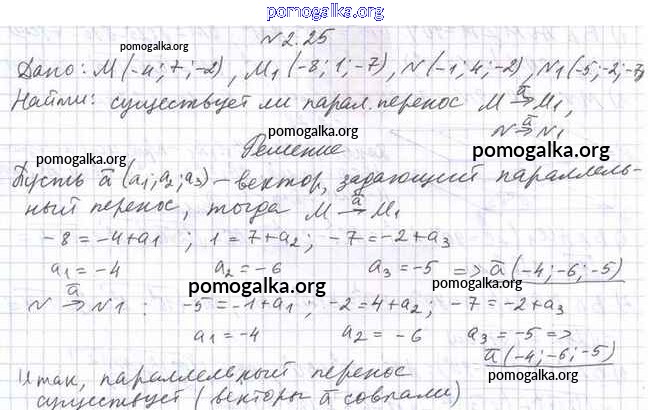 pomogalka.org
N 2.25
pomogalka.org
Дано: M(-4;7;-2), M1(-8;1;-7), N(-1;4;-2), N1(-5;-2;-7)
Найти: существует ли парал. перенос M →ā M1,
pomogalka.org
N →ā N1
pomogalka.org
Решение
pomogalka.org
pomogalka.org
Пусть ā(a1;a2;a3) – вектор, задающий параллель-
ный перенос, тогда M →ā M1
-8 = -4+a1 ; 1 = 7+a2 ; -7 = -2+a3
a1 = -4 a2 = -6 a3 = -5 => ā(-4;-6;-5)
pomogalka.org
pomogalka.org
N →ā N1 : -5 = -1+a1 ; -2 = 4+a2 ; -7 = -2+a3
a1 = -4 a2 = -6 a3 = -5 =>
ā(-4;-6;-5)
Итак, параллельный перенос
pomogalka.org
существует (векторы ā совпали)